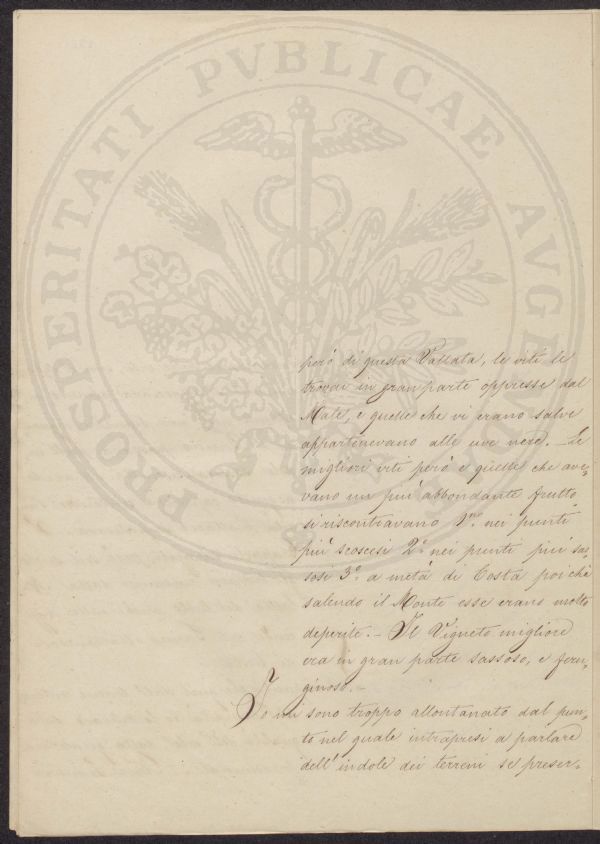 PROSPERITATI PVBLICAE AVGE
però di questa Vallata, le viti le
trovai in gran parte oppresse dal
Male, e quelle che vi erano salve
appartenevano alle uve nere. – Le
migliori viti però e quelle che ave-
vano un più abbondante frutto
si riscontravano 1.mo nei punti
più scoscesi 2.o nei punti più sas-
sosi 3.o a metà di Costa poichè
salendo il Monte esse erano molto
deperite. – Il Vigneto migliore
era in gran parte sassoso, e ferru-
ginoso. –
Io mi sono troppo allontanato dal pun-
to nel quale intrapresi a parlare
dell'indole dei terreni se preser-